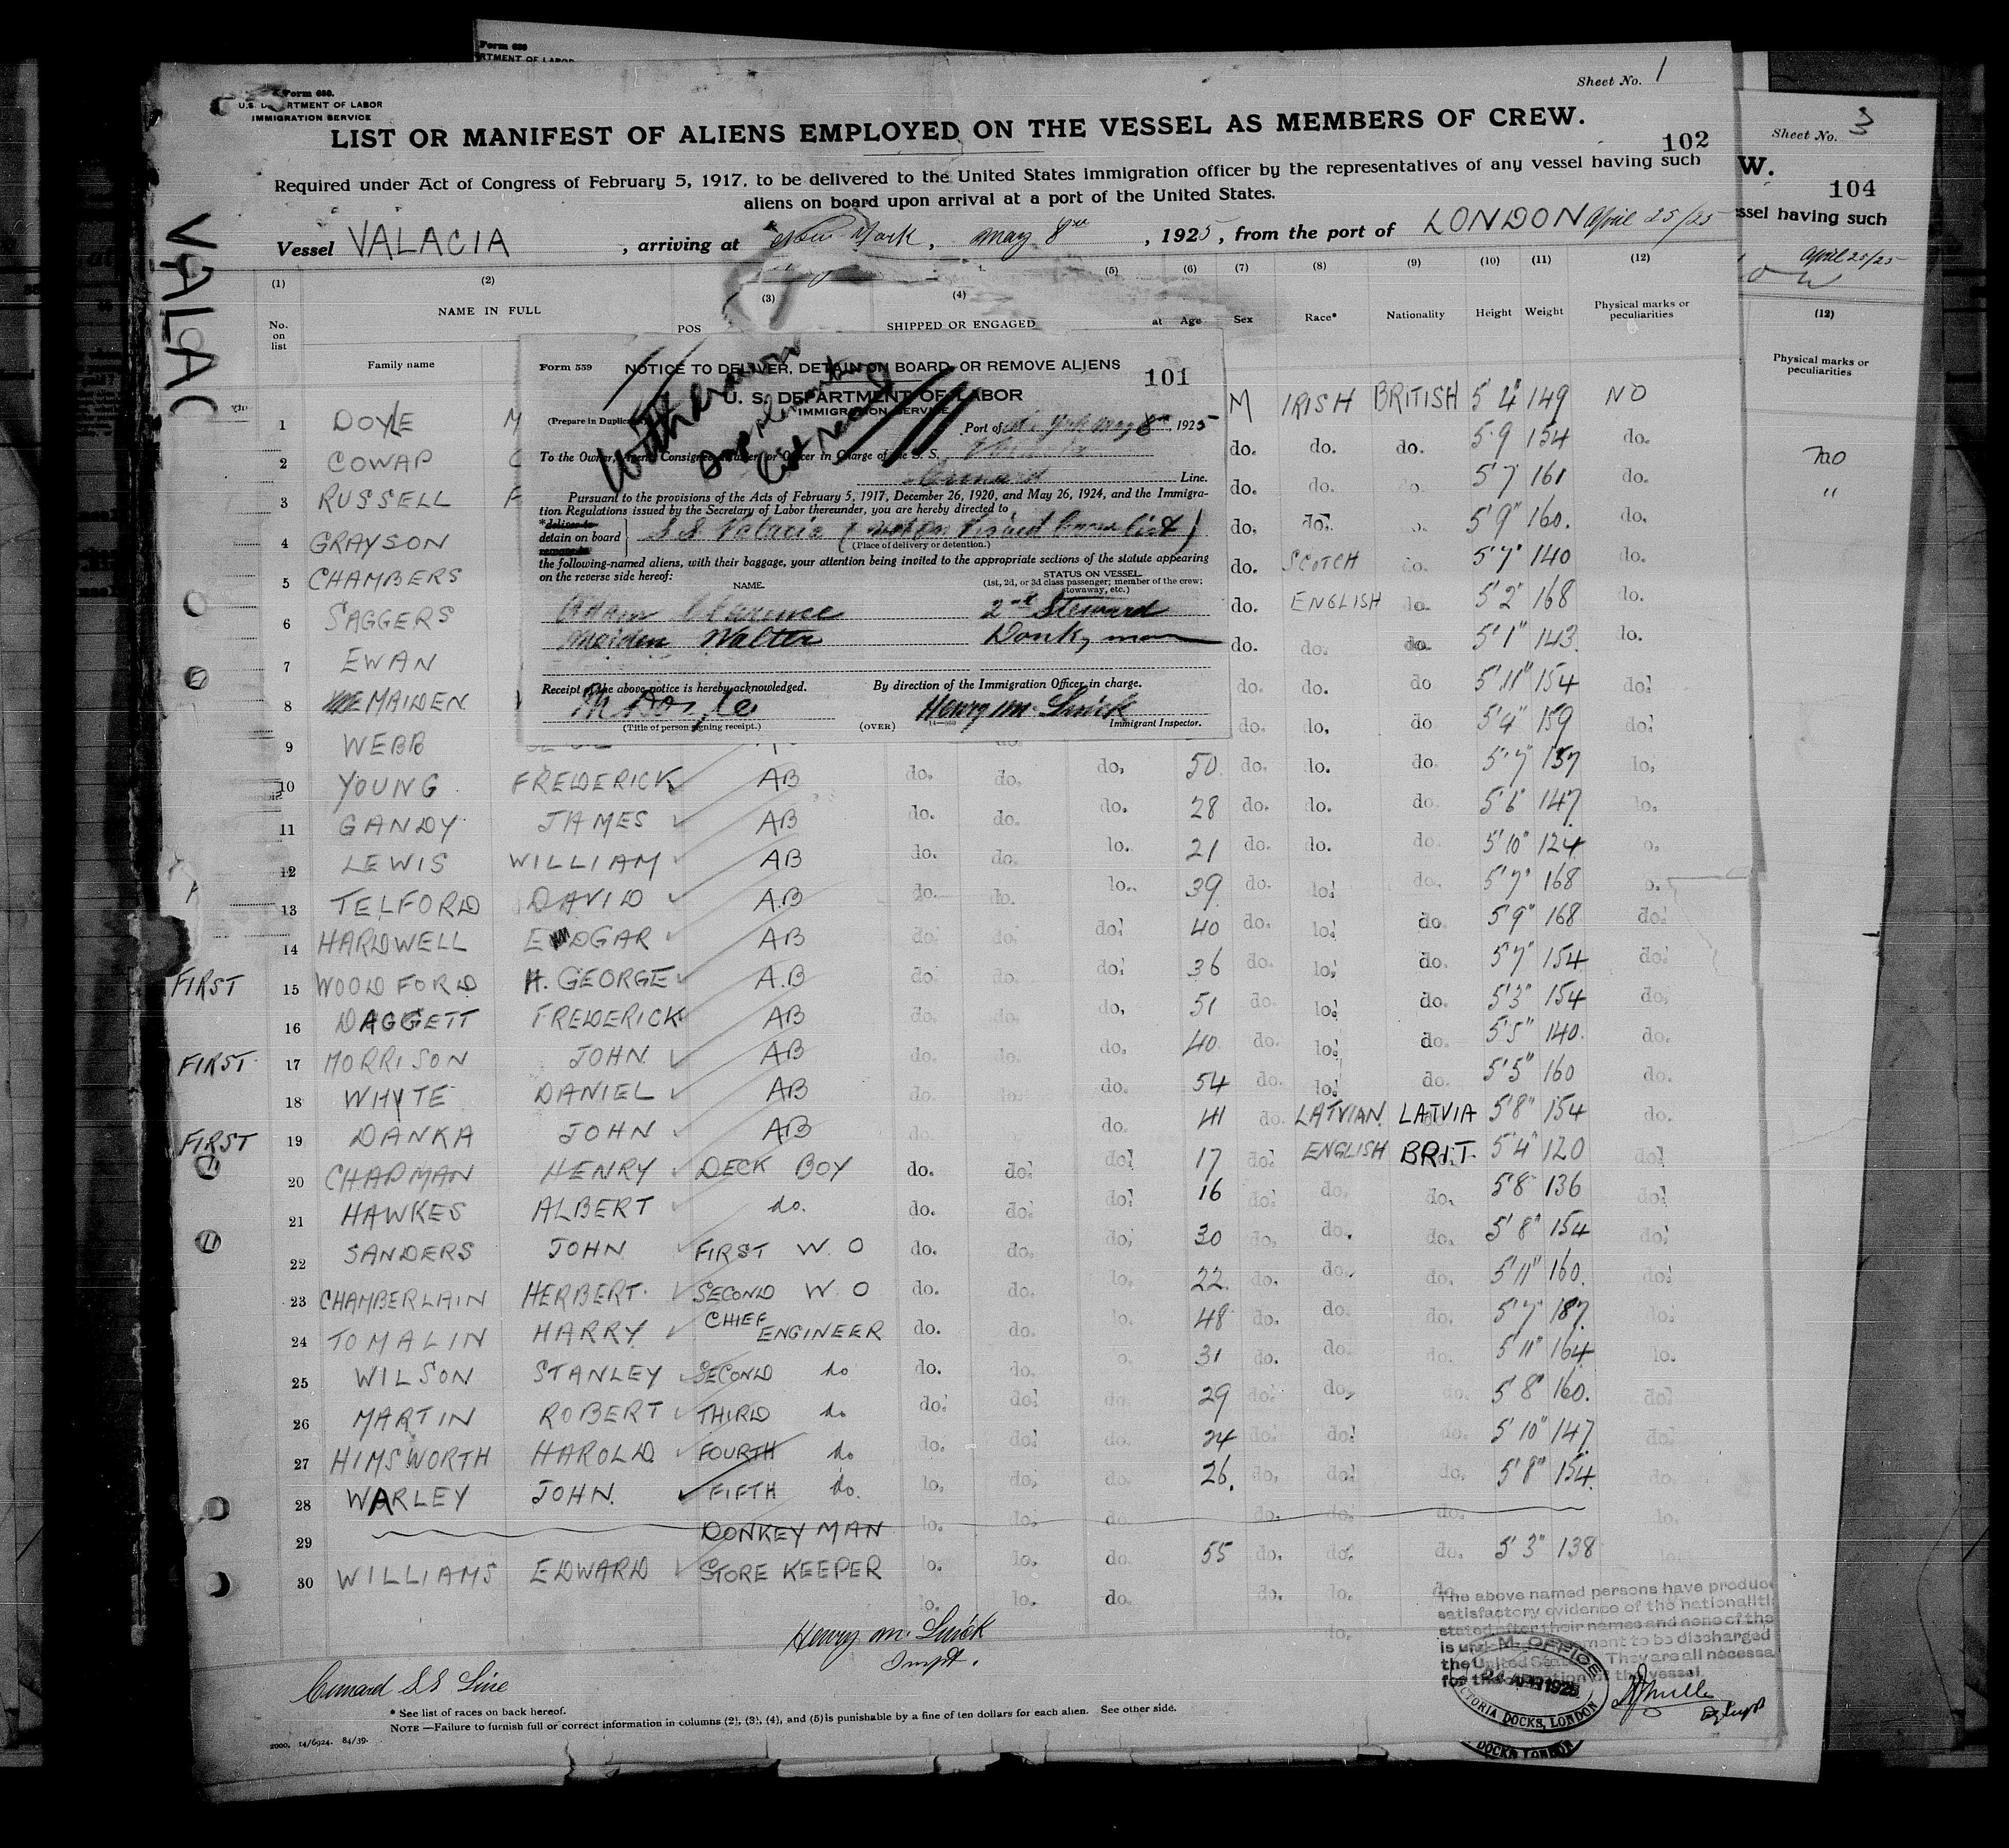 Form 680
RTMENT OF LABOR
Form 680.
U.S. DEPARTMENT OF LABOR
IMMIGRATION SERVICE
Sheet No. 1
LIST OR MANIFEST OF ALIENS EMPLOYED ON THE VESSEL AS MEMBERS OF CREW.
102
Required under Act of Congress of February 5, 1917, to be delivered to the United States immigration officer by the representatives of any vessel having such
aliens on board upon arrival at a port of the United States.
Vessel VALACIA, arriving at New York, May 8th, 1925, from the port of LONDON April 25/25
VALAC
(1) (2) (3) (4) (5) (6) (7) (8) (9) (10) (11) (12)
No. on list NAME IN FULL POS SHIPPED OR ENGAGED at Age Sex Race* Nationality Height Weight Physical marks or peculiarities
Family name
1 DOYLE M M IRISH BRITISH 5'4" 149 NO
2 COWAP C do. do. do. 5'9 154 do.
3 RUSSELL F do. do. do. 5'7 161 do.
4 GRAYSON do. do. 5'9" 160. do.
5 CHAMBERS do. SCOTCH do. 5'7" 140 do.
6 SAGGERS do. ENGLISH do. 5'2" 168 do.
7 EWAN do. do. do. 5'1" 143. lo.
8 EMAIDEN do. do. do 5'11" 154 do.
9 WEBB do. lo. do 5'9" 159 do.
10 YOUNG FREDERICK AB do. do. do. 50 do. lo. do. 5'7" 157 lo.
11 GANDY JAMES AB do. do. do. 28 do. do. do. 5'6" 147 lo.
12 LEWIS WILLIAM AB do. do. lo. 21 do. do. do. 5'10" 124 o.
13 TELFORD DAVID A.B do. do. lo. 39 do. lo. do. 5'7" 168 o.
14 HARDWELL EDGAR AB do. do. do. 40 do. lo. do. 5'9" 168 do.
FIRST 15 WOODFORD H. GEORGE A.B do. do. do. 36 do. lo. do. 5'7" 154 do.
16 DAGGETT FREDERICK AB do. do. do. 51 do. lo. do. 5'3" 154 do.
FIRST 17 MORRISON JOHN AB do. do. do. 40 do. lo. do. 5'5" 140. do.
18 WHYTE DANIEL AB do. do. do. 54 do. lo. do. 5'5" 160 do.
FIRST 19 DANKA JOHN AB do. do. do. 41 do. LATVIAN. LATVIA 5'8" 154 do.
20 CHAPMAN HENRY DECK BOY do. do. do. 17 do. ENGLISH BRIT. 5'4" 120 do.
21 HAWKES ALBERT do. do. do. do. 16 do. do. do. 5'8" 136 do.
22 SANDERS JOHN FIRST W. O do. do. do. 30 do. do. do. 5'8" 154 do.
23 CHAMBERLAIN HERBERT. SECOND W. O do. do. lo. 22 do. do. do. 5'11" 160. do.
24 TOMALIN HARRY CHIEF ENGINEER do. do. lo. 48 do. do. do. 5'7" 187. lo.
25 WILSON STANLEY SECOND do do. do. o. 31 do. do. do. 5'11" 164 lo.
26 MARTIN ROBERT THIRD do do. do. do. 29 do. do. do. 5'8" 160. do.
27 HIMSWORTH HAROLD FOURTH do do. do. do. 24 do. do. do. 5'10" 147 do.
28 WARLEY JOHN. FIFTH do. lo. do. do. 26. do. do. do. 5'8" 154. do.
29 DONKEY MAN lo. do. do. do. do. do. lo.
30 WILLIAMS EDWARD STORE KEEPER lo. lo. do. 55 do. do. do. 5'3" 138
lo. lo. do. do. lo. do.
Form 559 NOTICE TO DELIVER, DETAIN ON BOARD, OR REMOVE ALIENS
101
U. S. DEPARTMENT OF LABOR
IMMIGRATION SERVICE
(Prepare in Duplicate) Port of N. York May 8th, 1925
To the Owner, Agent, Consignee, Master, or Officer in Charge of the S. S. Valacia
Cunard Line.
Pursuant to the provisions of the Acts of February 5, 1917, December 26, 1920, and May 26, 1924, and the Immigra-
tion Regulations issued by the Secretary of Labor thereunder, you are hereby directed to
*deliver to
detain on board
remove to
S S Valacia (not on visaed crew list)
(Place of delivery or detention.)
the following-named aliens, with their baggage, your attention being invited to the appropriate sections of the statute appearing
on the reverse side hereof:
NAME. STATUS ON VESSEL
(1st, 2d, or 3d class passenger; member of the crew; stowaway, etc.)
Adam Clarence 2nd Steward
Maiden Walter Donkyman
Receipt of the above notice is hereby acknowledged. By direction of the Immigration Officer in charge.
M Doyle Henry M. Smick
(Title of person signing receipt.) (OVER) Immigrant Inspector.
Henry M. Smick
Inspt.
Cunard SS Line
The above named persons have produced
satisfactory evidence of the nationaliti
stated after their names and none of the
is under to be discharged
the United States They are all necessa
for the operation of the vessel.
M. OFFICE
24 APR 1925
VICTORIA DOCKS, LONDON
DOCKS, LONDON
* See list of races on back hereof.
NOTE.—Failure to furnish full or correct information in columns (2), (3), (4), and (5) is punishable by a fine of ten dollars for each alien. See other side.
2000. 14/6924. 84/39.
Sheet No. 3
W.
104
ssel having such
April 25/25
(12)
Physical marks or
peculiarities
no
"